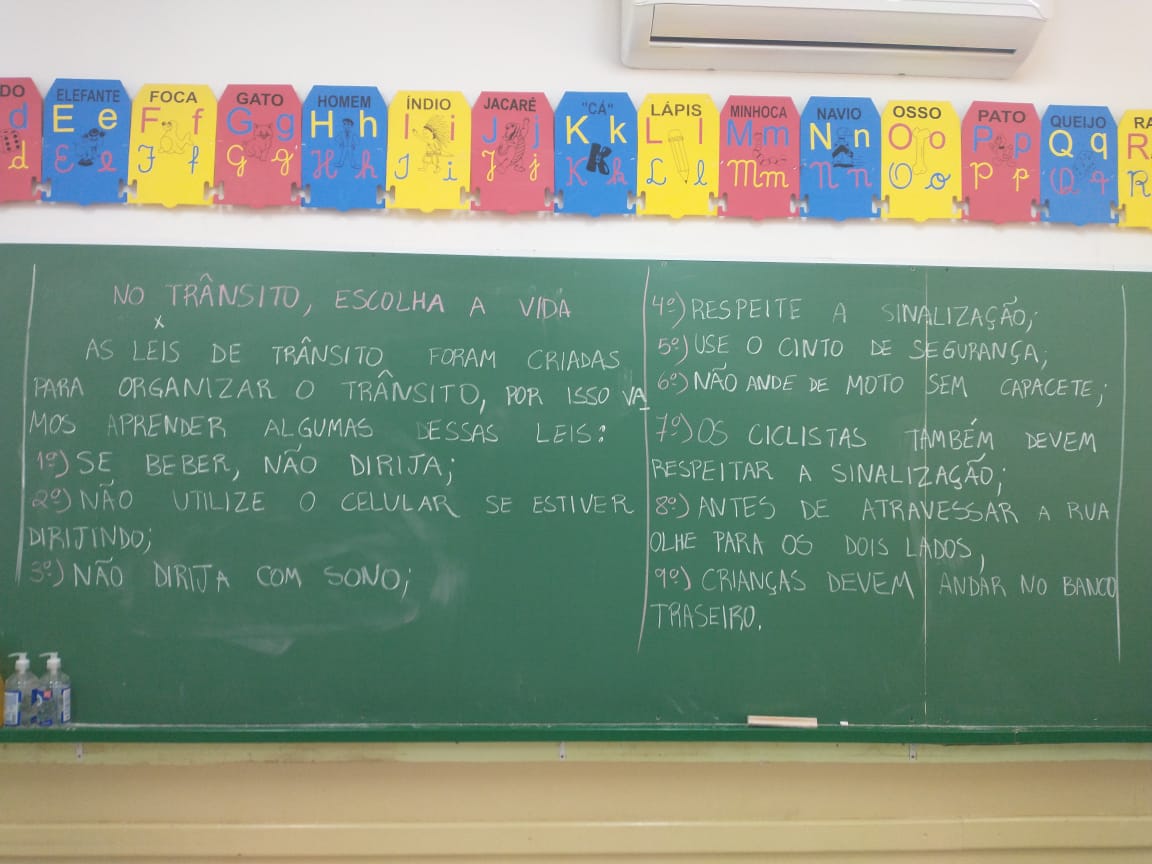 DO ELEFANTE FOCA GATO HOMEM ÍNDIO JACARÉ "CÁ" LÁPIS MINHOCA NAVIO OSSO PATO QUEIJO RA
d E e F f G g H h I i J j K k L l M m N n O o P p Q q R
d E e F f G g H h I i J j K k L l M m N n O o P p Q q R
NO TRÂNSITO, ESCOLHA A VIDA
x
AS LEIS DE TRÂNSITO FORAM CRIADAS
PARA ORGANIZAR O TRÂNSITO, POR ISSO VA
MOS APRENDER ALGUMAS DESSAS LEIS:
1º) SE BEBER, NÃO DIRIJA;
2º) NÃO UTILIZE O CELULAR SE ESTIVER
DIRIJINDO;
3º) NÃO DIRIJA COM SONO;
4º) RESPEITE A SINALIZAÇÃO;
5º) USE O CINTO DE SEGURANÇA;
6º) NÃO ANDE DE MOTO SEM CAPACETE;
7º) OS CICLISTAS TAMBÉM DEVEM
RESPEITAR A SINALIZAÇÃO;
8º) ANTES DE ATRAVESSAR A RUA
OLHE PARA OS DOIS LADOS,
9º) CRIANÇAS DEVEM ANDAR NO BANCO
TRASEIRO.